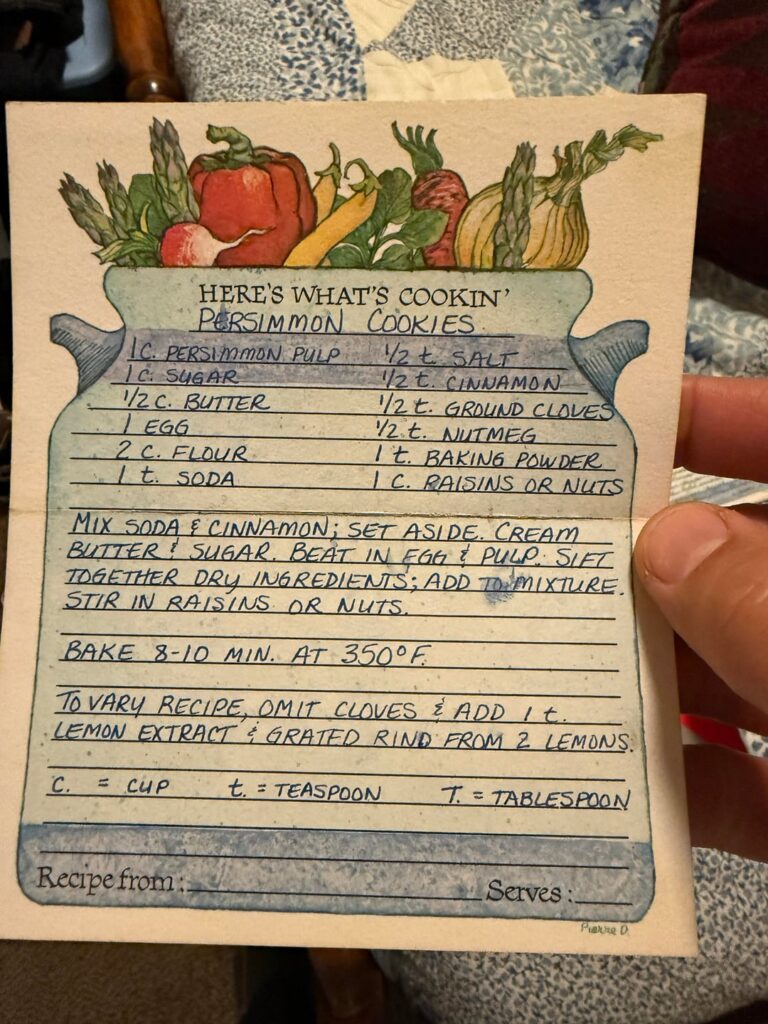 HERE'S WHAT'S COOKIN'
PERSIMMON COOKIES
1 C. PERSIMMON PULP 1/2 t. SALT
1 C. SUGAR 1/2 t. CINNAMON
1/2 C. BUTTER 1/2 t. GROUND CLOVES
1 EGG 1/2 t. NUTMEG
2 C. FLOUR 1 t. BAKING POWDER
1 t. SODA 1 C. RAISINS OR NUTS
MIX SODA & CINNAMON; SET ASIDE. CREAM
BUTTER & SUGAR. BEAT IN EGG & PULP. SIFT
TOGETHER DRY INGREDIENTS; ADD TO MIXTURE.
STIR IN RAISINS OR NUTS.
BAKE 8-10 MIN. AT 350°F.
TO VARY RECIPE, OMIT CLOVES & ADD 1 t.
LEMON EXTRACT & GRATED RIND FROM 2 LEMONS.
C. = CUP t. = TEASPOON T. = TABLESPOON
Recipe from: Serves:
Pierre D.